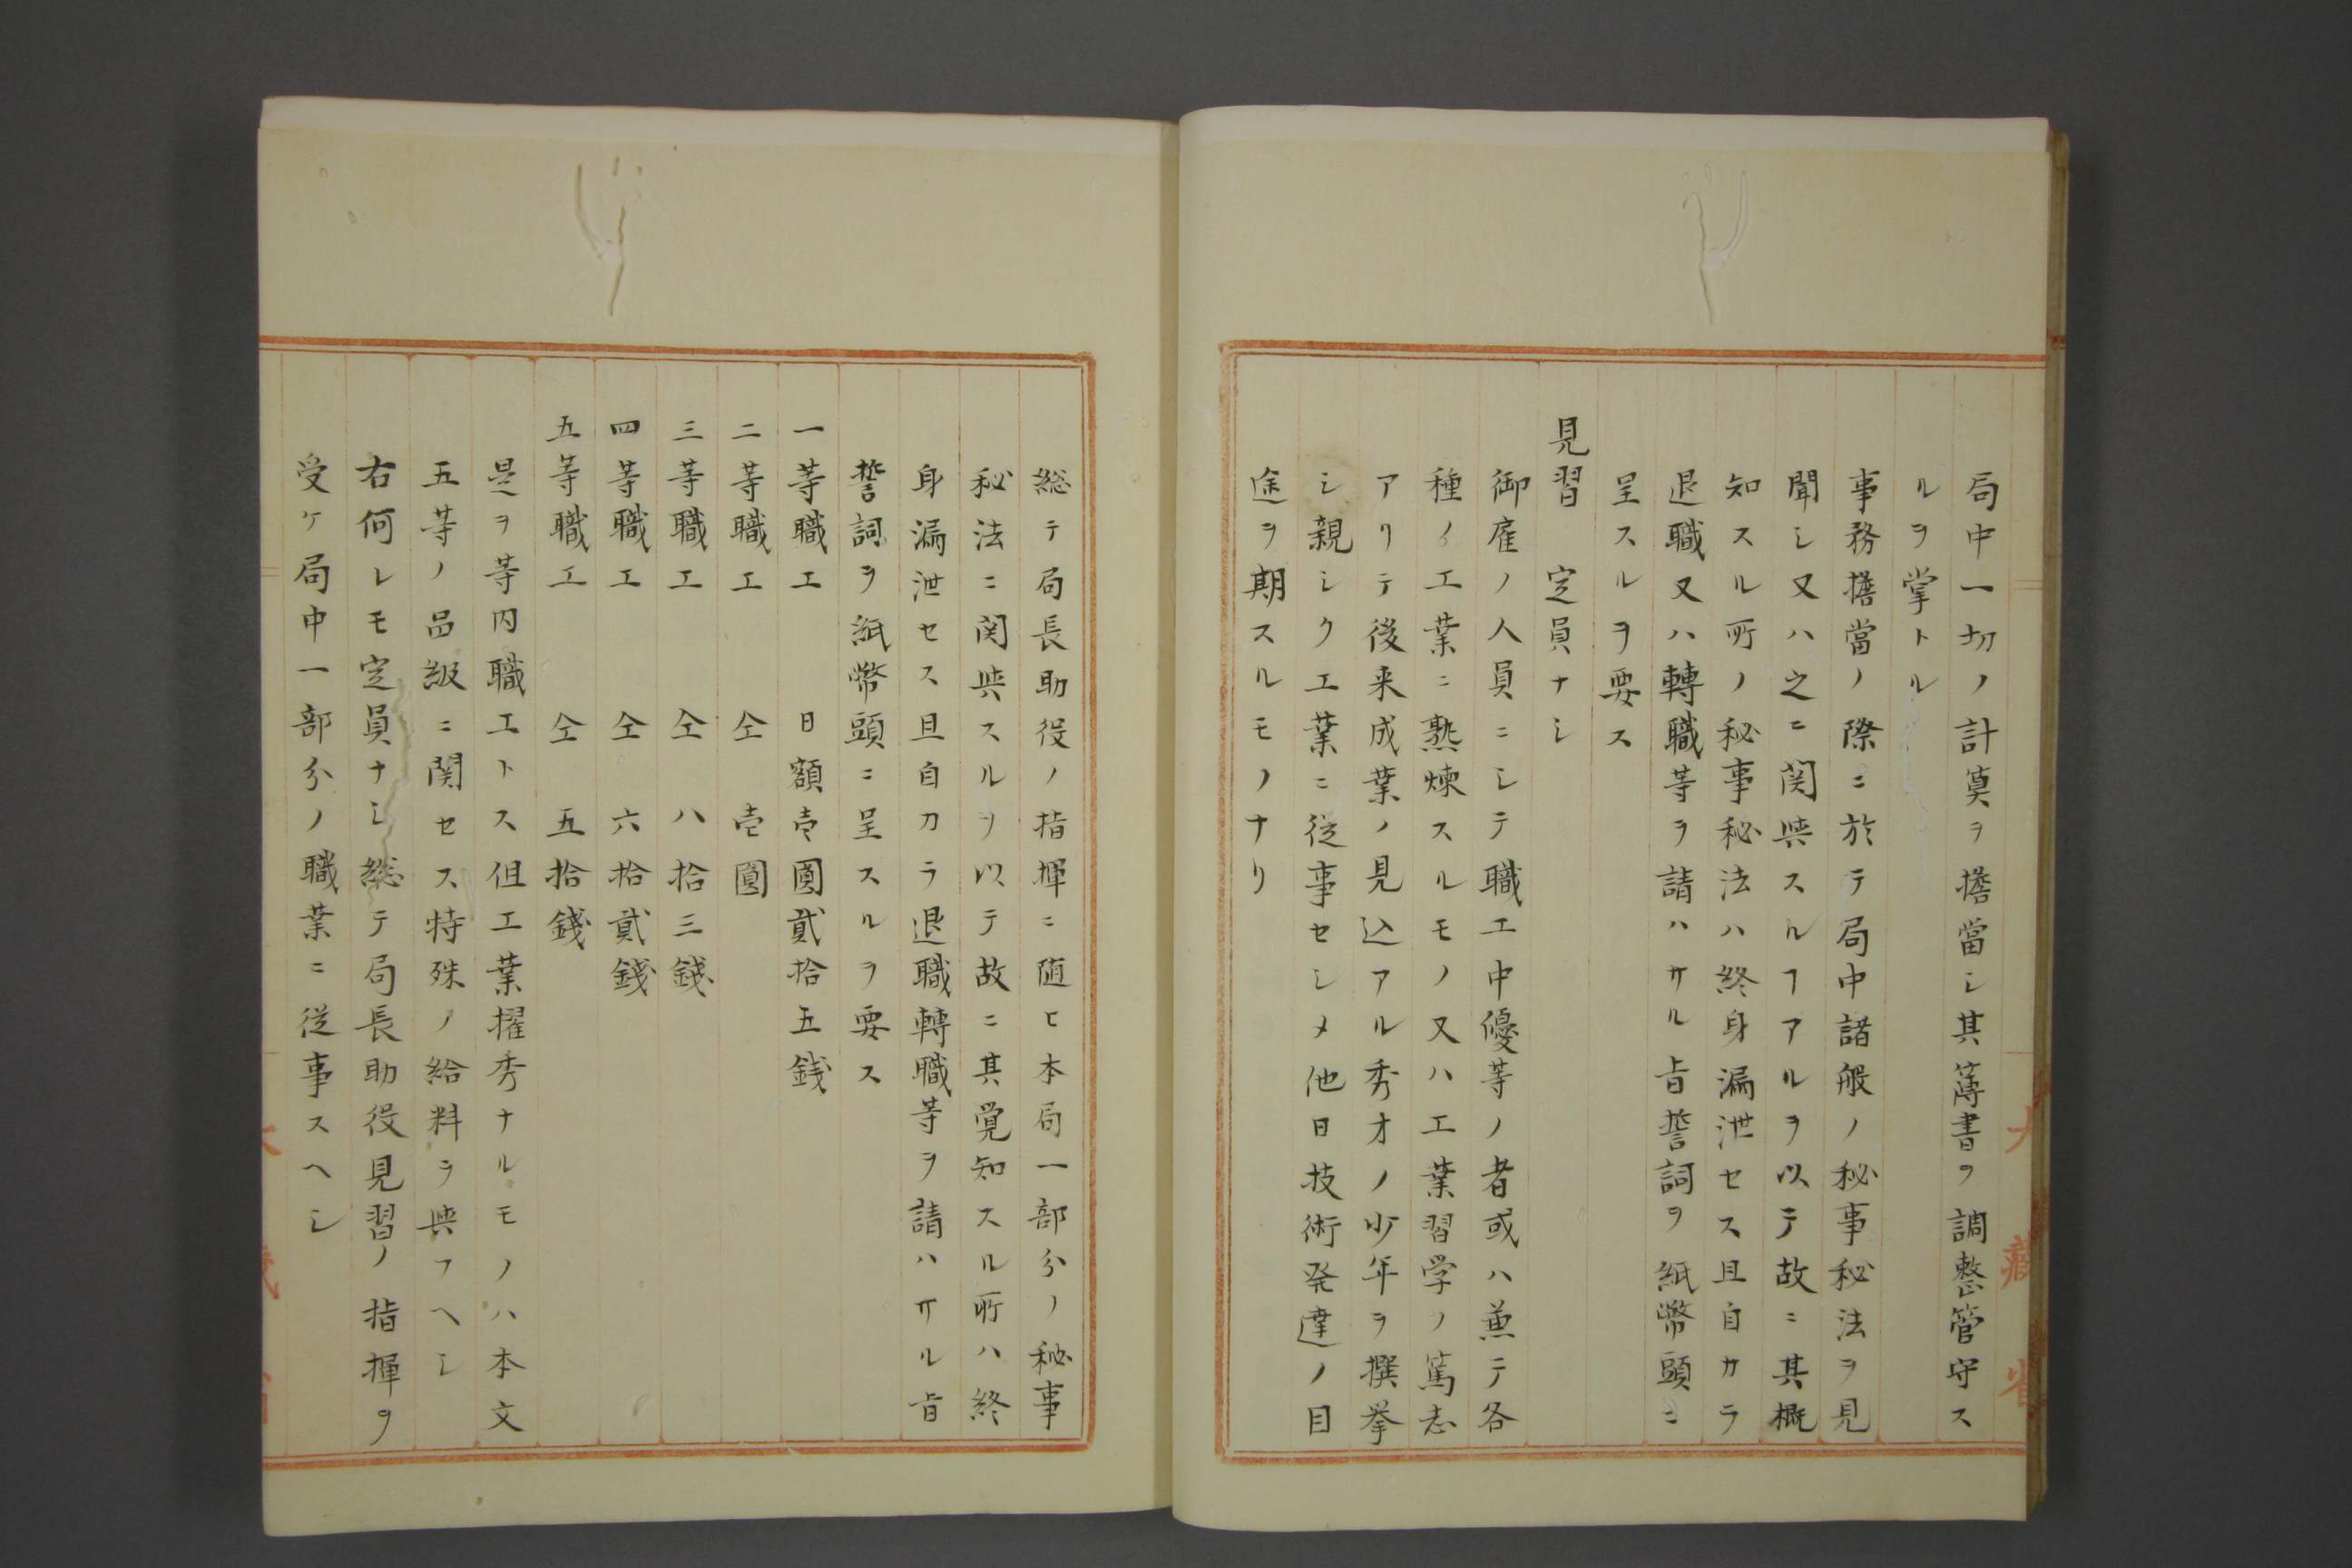 局中一切ノ計算ヲ擔當シ其簿書ヲ調整管守ス
ルヲ掌トル
事務擔當ノ際ニ於テ局中諸般ノ秘事秘法ヲ見
聞シ又ハ之ニ関與スルヿアルヲ以テ故ニ其概
知スル所ノ秘事秘法ハ終身漏泄セス且自カラ
退職又ハ轉職等ヲ請ハサル旨誓詞ヲ紙幣頭ニ
呈スルヲ要ス
見習 定員ナシ
御雇ノ人員ニシテ職工中優等ノ者或ハ兼テ各
種ノ工業ニ熟煉スルモノ又ハ工業習学ノ篤志
アリテ後来成業ノ見込アル秀才ノ少年ヲ撰挙
シ親シク工業ニ従事セシメ他日技術発達ノ目
途ヲ期スルモノナリ
大藏省
総テ局長助役ノ指揮ニ随ヒ本局一部分ノ秘事
秘法ニ関與スルヲ以テ故ニ其覚知スル所ハ終
身漏泄セス且自カラ退職轉職等ヲ請ハサル旨
誓詞ヲ紙幣頭ニ呈スルヲ要ス
一等職工 日額壱圓貮拾五銭
二等職工 仝 壱圓
三等職工 仝 八拾三銭
四等職工 仝 六拾貮銭
五等職工 仝 五拾銭
是ヲ等内職工トス但工業擢秀ナルモノハ本文
五等ノ品級ニ関セス特殊ノ給料ヲ與フヘシ
右何レモ定員ナシ総テ局長助役見習ノ指揮ヲ
受ケ局中一部分ノ職業ニ従事スヘシ